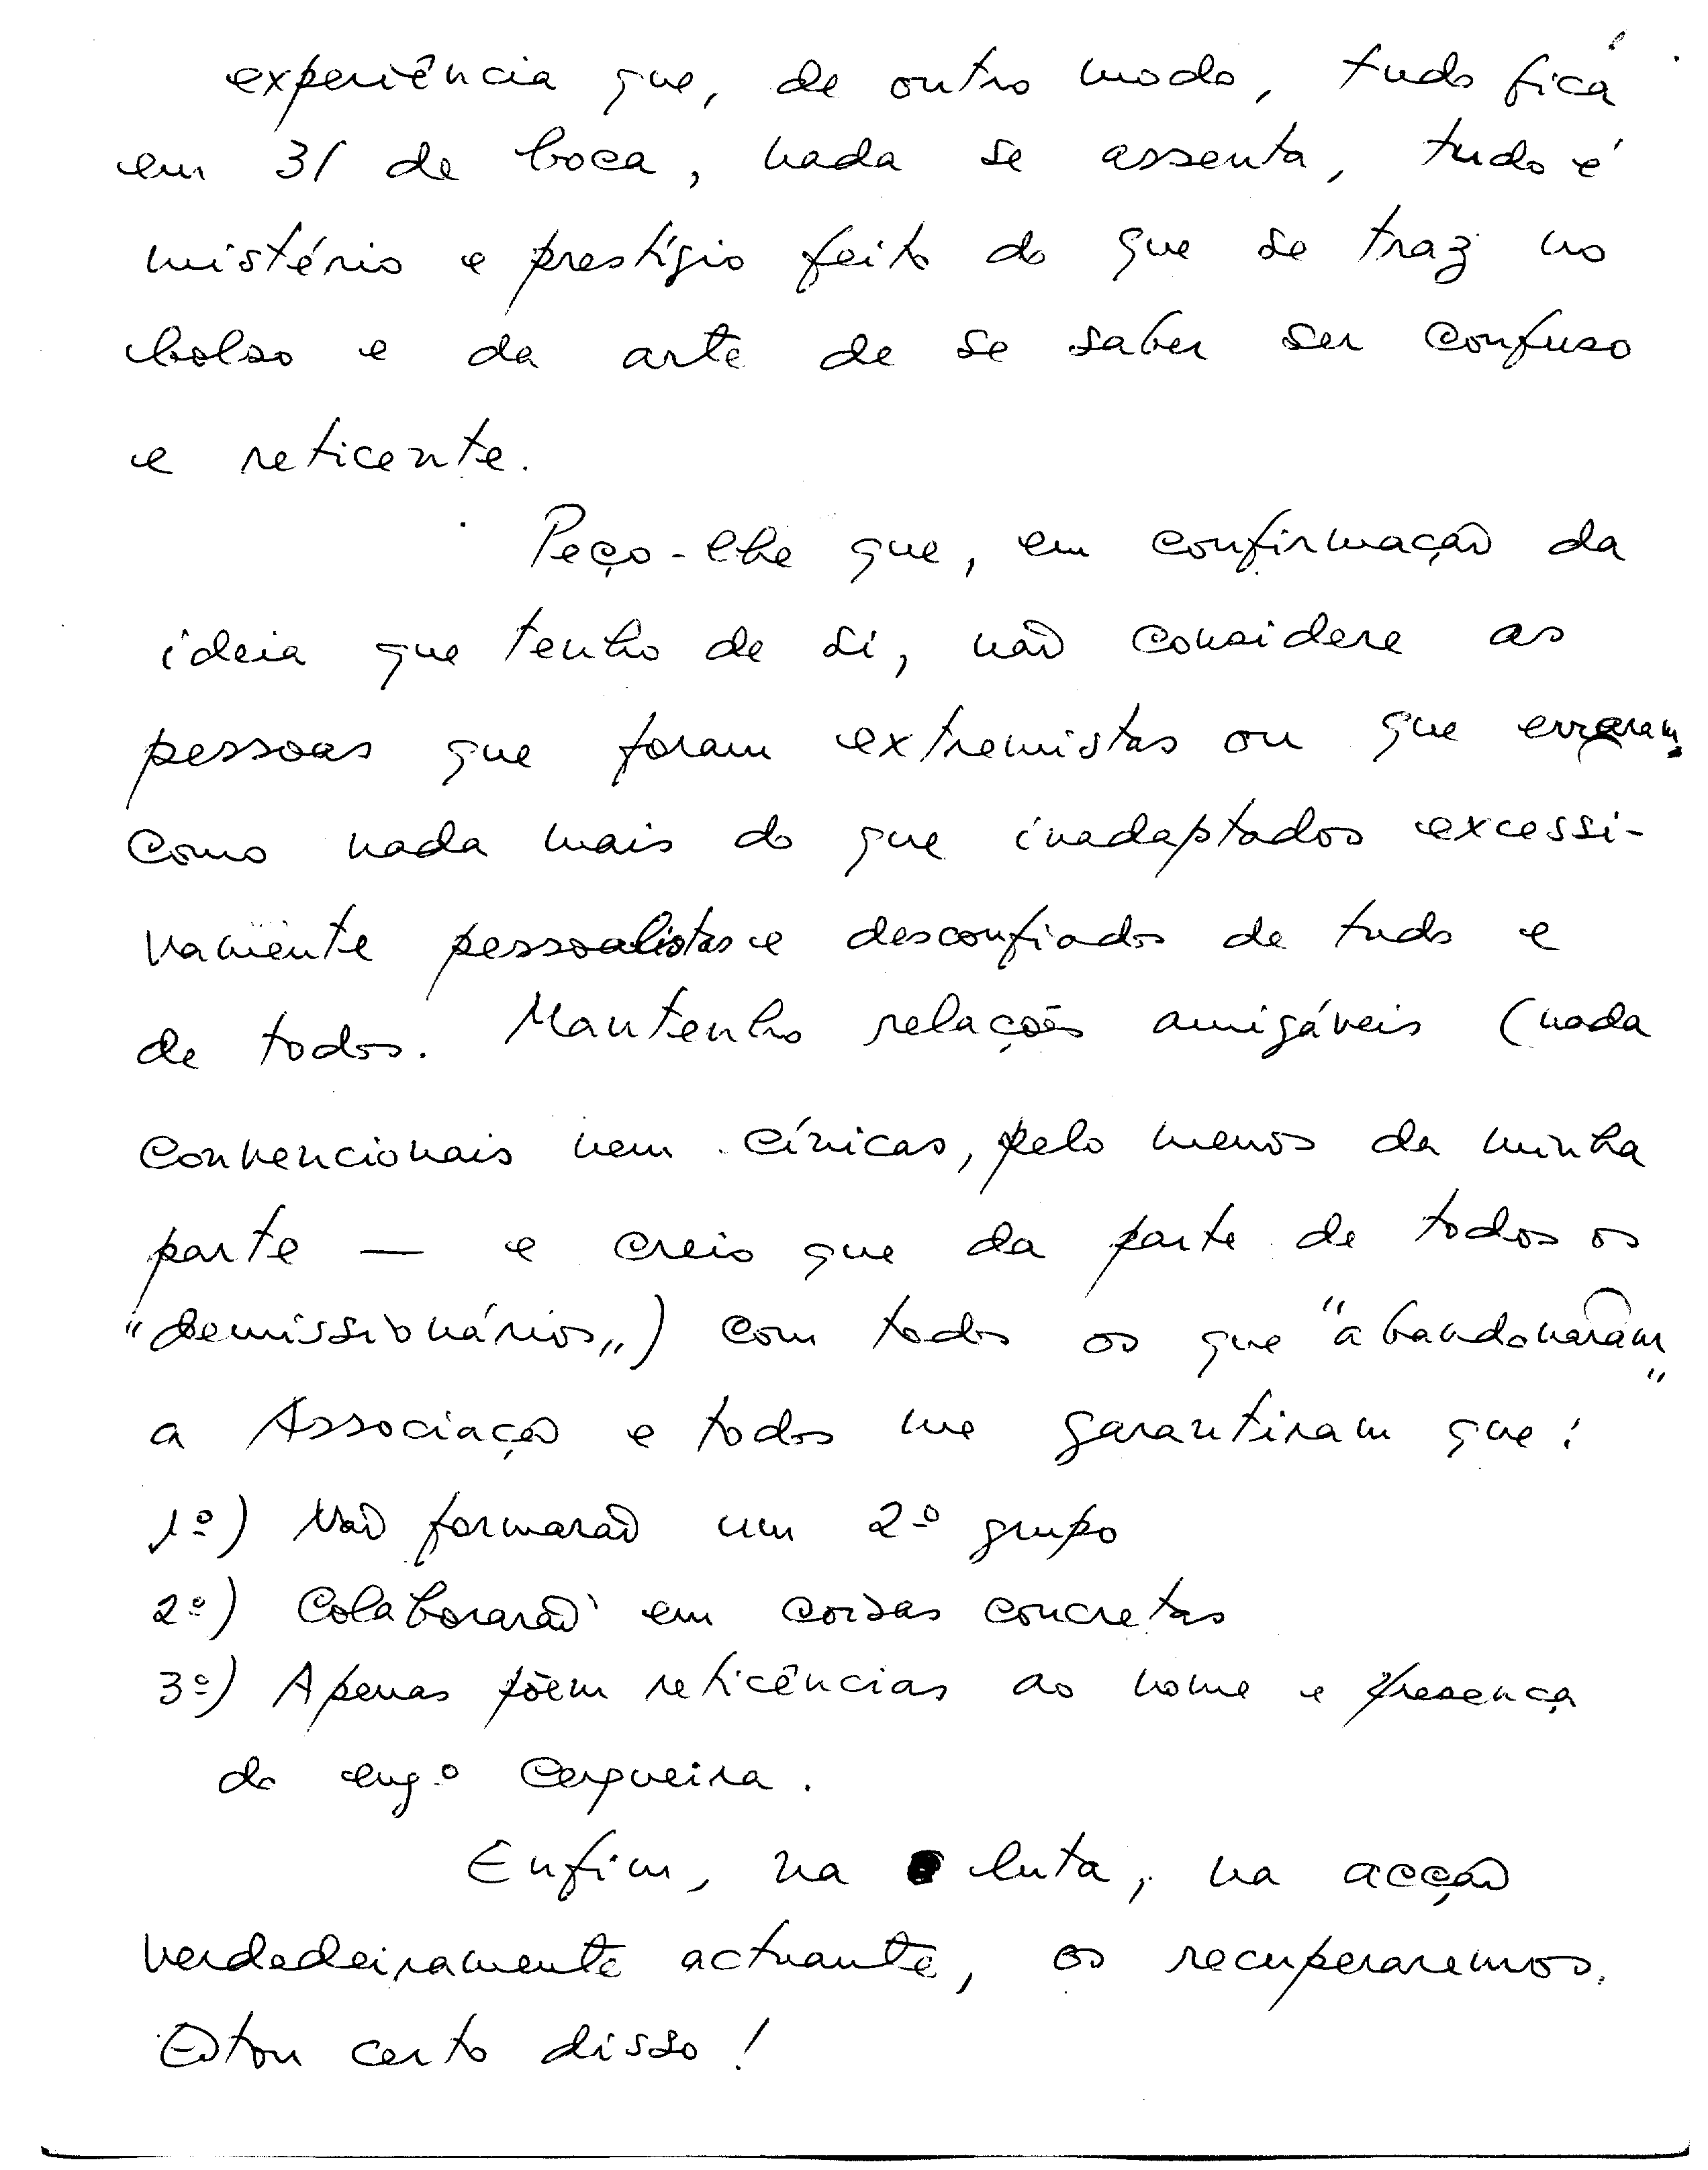 experiência que, de outro modo, tudo fica
em 31 de boca, nada se assenta, tudo é
mistério e prestígio feito do que se traz no
bolso e da arte de se saber ser confuso
e reticente.
Peço-lhe que, em confirmação da
ideia que tenho de si, não considere as
pessoas que foram extremistas ou que erraram,
como nada mais do que inadaptados excessi-
vamente pessoalistas e desconfiados de tudo e
de todos. Mantenho relações amigáveis (nada
convencionais nem cínicas, pelo menos da minha
parte — e creio que da parte de todos os
"demissionários") com todos os que "abandonaram"
a Associação e todos me garantiram que:
1º) Não formarão um 2º grupo
2º) Colaborarão em coisas concretas
3º) Apenas põem reticências ao nome e presença
do engº Cerqueira.
Enfim, na luta, na acção
verdadeiramente actuante, os recuperaremos.
Estou certo disso!